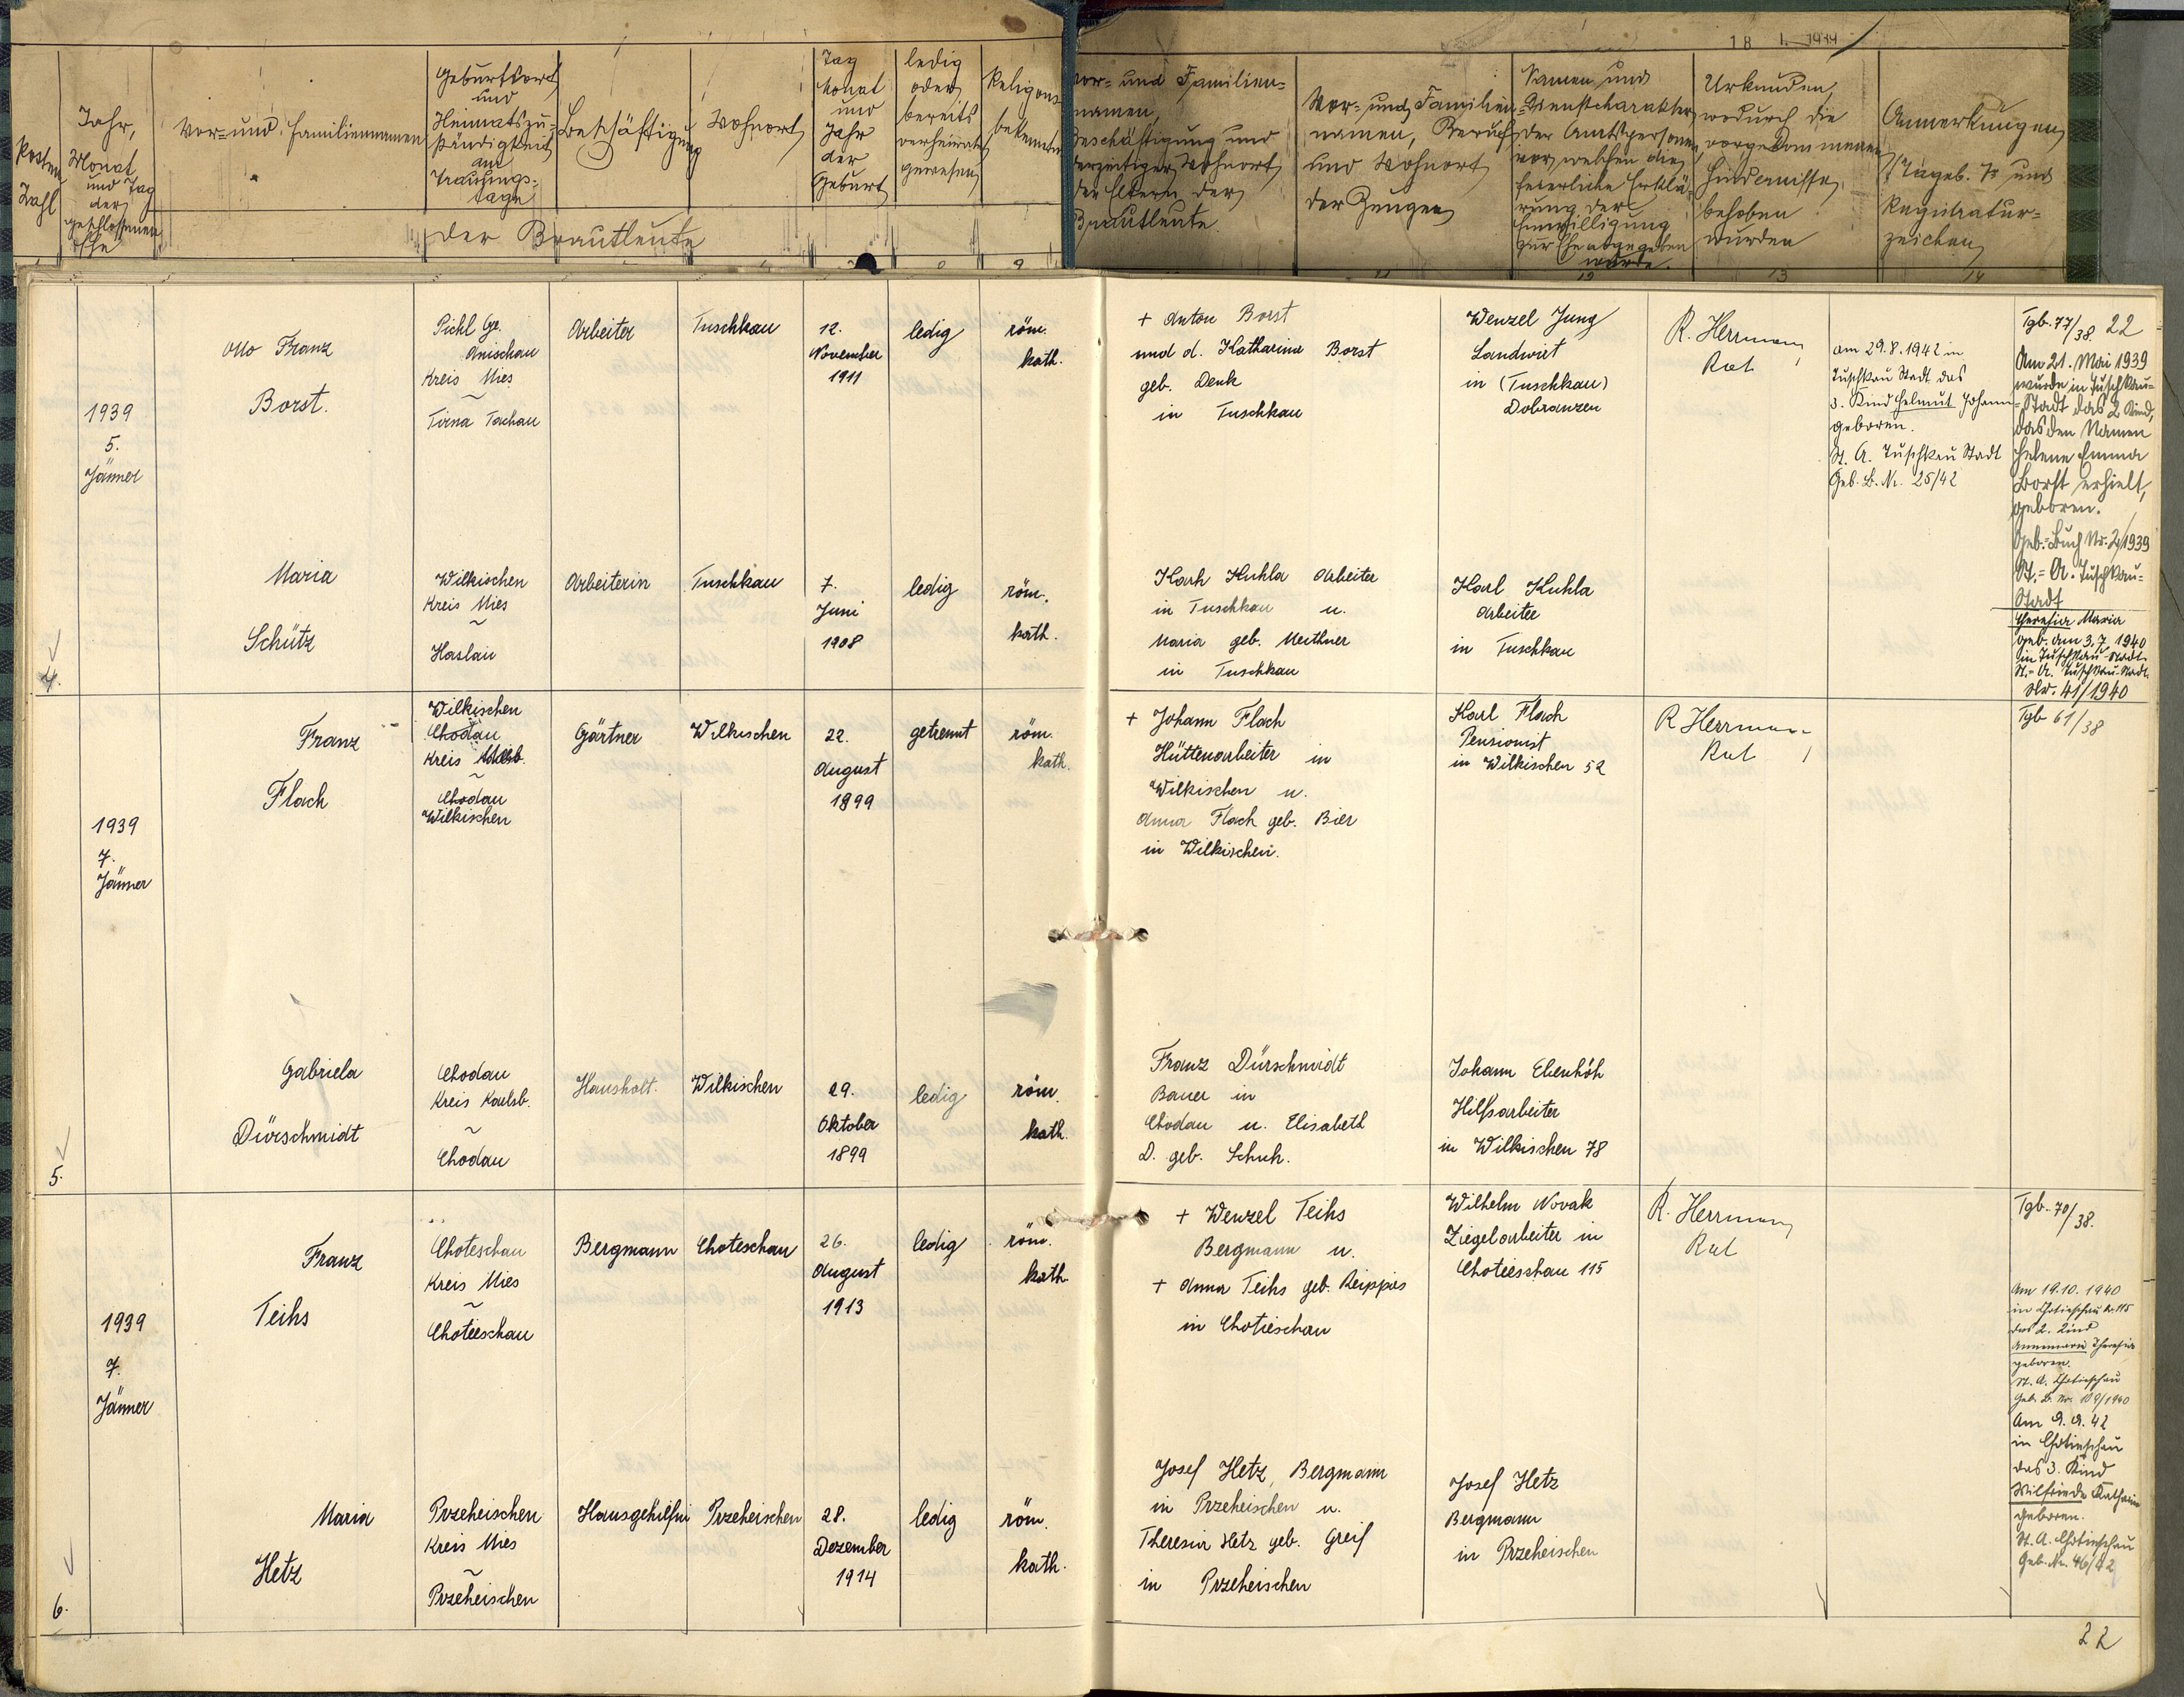 18 I. 1944
Posten
Zahl
Jahr,
Monat
und Tag
der
geschlossenen
Ehe
Vor- und Familiennamen
Geburtsort
und
Heimatszu-
ständigkeit
am
Trauungs-
tage
Beschäftigung
Wohnort
Tag
Monat
und
Jahr
der
Geburt
ledig
oder
bereits
verheiratet
gewesen
Religions-
bekenntnis
der Brautleute
Vor- und Familien-
namen,
Beschäftigung und
derzeitiger Wohnort
der Eltern der
Brautleute.
Vor- und Familien-
namen, Beruf
und Wohnort
der Zeugen
Namen und
Dienstcharakter
der Amtsperson
vor welcher die
feierliche Erklä-
rung der
Einwilligung
zur Ehe abgegeben
wurde.
Urkunden,
wodurch die
vorgekommenen
Hindernisse
behoben
wurden
Anmerkungen
Tageb. Z. und
Registratur-
zeichen
9
11
12
13
14
4.
1939
5.
Jänner
Otto Franz
Borst.
Pichl Ge.
Anischau
Kreis Mies
~
Tirna Tachau
Arbeiter
Tuschkau
12.
November
1911
ledig
röm.
kath.
+ Anton Borst
und d. Katharina Borst
geb. Denk
in Tuschkau
Wenzel Jung
Landwirt
in (Tuschkau)
Dobranzen
R. Herrmann
Rat
am 29.8.1942 in
Tuschkau Stadt das
3. Kind Helmut Johann
geboren.
St. A. Tuschkau Stadt
Geb. B. Nr. 25/42
Tgb. 77/38. 22
Am 21. Mai 1939
wurde in Tuschkau-
Stadt das 2 Kind,
das den Namen
Helene Emma
Borst erhielt,
geboren.
Geb.-Buch Nr. 2/1939
St.-A. Tuschkau-
Stadt
Theresia Maria
geb. am 3.7. 1940
in Tuschkau-Stadt.
St.-A. Tuschkau-Stadt.
Nr. 41/1940
Maria
Schütz
Wilkischen
Kreis Mies
~
Haslau
Arbeiterin
Tuschkau
7.
Juni
1908
ledig
röm.
kath.
Karl Kuhla Arbeiter
in Tuschkau u.
Maria geb.
in Tuschkau
Karl Kuhla
Arbeiter
in Tuschkau
5.
1939
7.
Jänner
Franz
Flach
Wilkischen
Chodau
Kreis
~
Chodau
Wilkischen
Gärtner
Wilkischen
22.
August
1899
getrennt
röm.
kath.
+ Johann Flach
Hüttenarbeiter in
Wilkischen u.
Anna Flach geb. Bier
in Wilkischen.
Karl Flach
Pensionist
in Wilkischen 52
R Herrmann
Rat
Tgb 61/38
Gabriela
Dürschmidt
Chodau
Kreis Karlsb.
~
Chodau
Haushalt.
Wilkischen
29.
Oktober
1899
ledig
röm.
kath.
Franz Dürschmidt
Bauer in
Chodau u. Elisabeth
D. geb. Schuh.
Johann Ebenhöh
Hilfsarbeiter
in Wilkischen 78
6.
1939
7.
Jänner
Franz
Teihs
Choteschau
Kreis Mies
~
Chotieschau
Bergmann
Choteschau
26.
August
1913
ledig
röm.
kath.
+ Wenzel Teihs
Bergmann u.
+ Anna Teihs geb.
in Chotieschau
Wilhelm Novak
Ziegelarbeiter in
Chotieschau 115
R. Herrmann
Rat
Tgb. 70/38.
Am 19.10. 1940
in Chotieschau Nr. 115
das 2. Kind
Annemarie Theresia
geboren.
St. A. Chotieschau
Geb. B. Nr. 109/1940
Am 9.9.42
in Chotieschau
das 3. Kind
Wilfriede Katharina
geboren.
St. A. Chotieschau
Geb. Nr. 46/42
Maria
Hetz
Przeheischen
Kreis Mies
~
Przeheischen
Hausgehilfin
Przeheischen
28.
Dezember
1914
ledig
röm.
kath.
Josef Hetz, Bergmann
in Przeheischen u.
Theresia Hetz geb. Greif
in Przeheischen
Josef Hetz
Bergmann
in Przeheischen
22